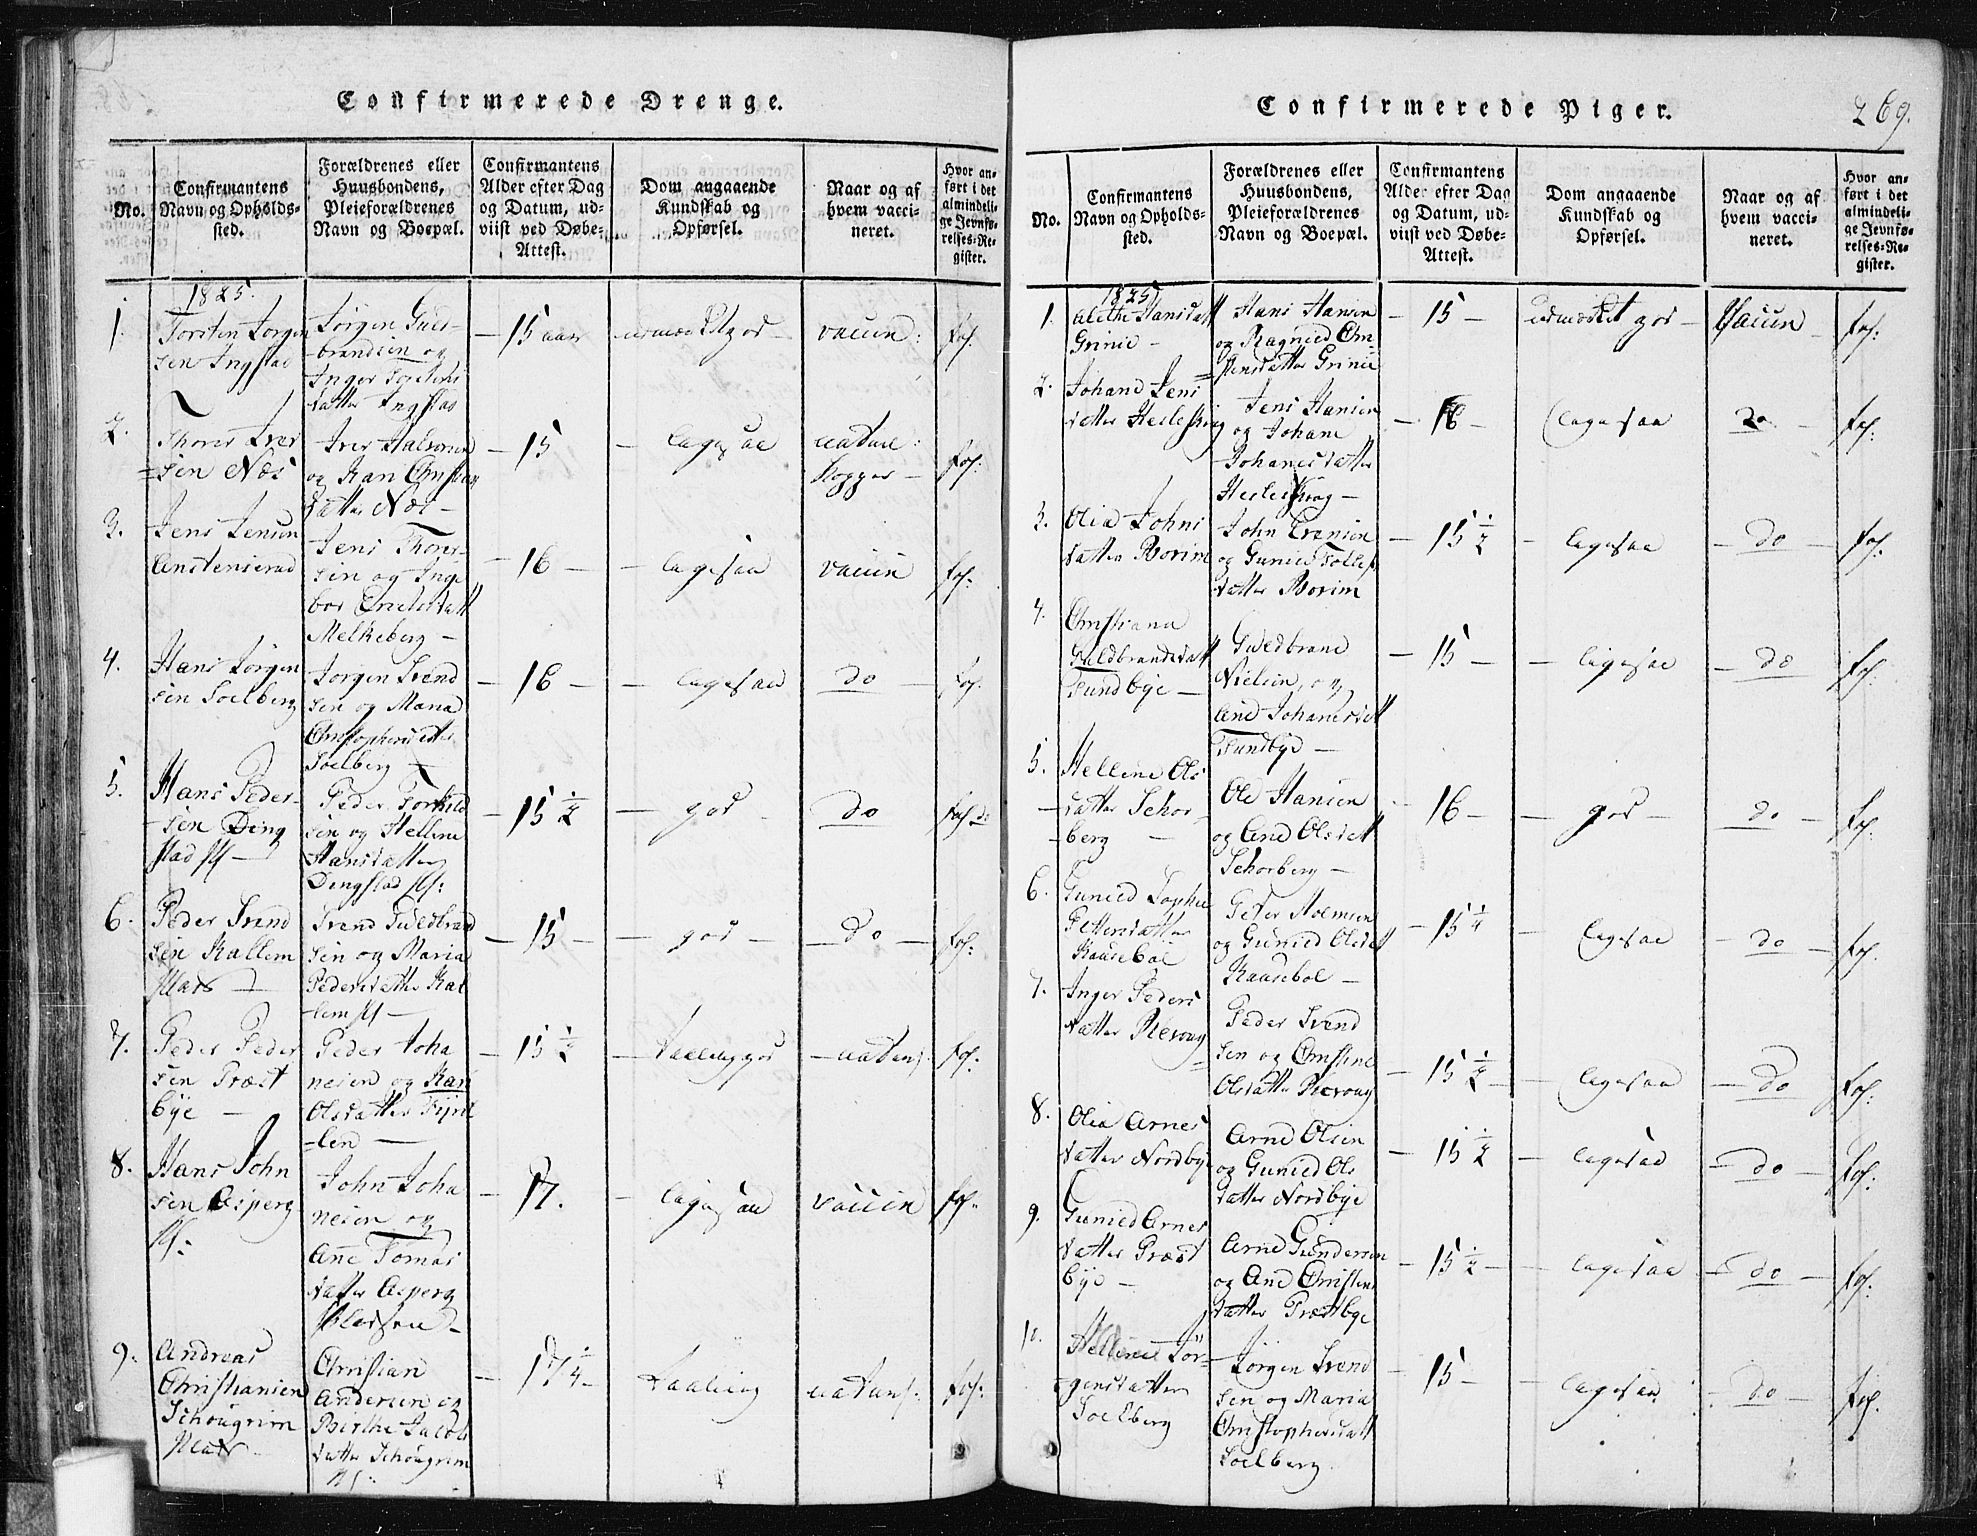 Confirmerede Drenge.
No.
Confirmantens
Navn og Opholds-
sted.
Forældrenes eller
Huusbondens,
Pleieforældrenes
Navn og Boepæl.
Confirmantens
Alder efter Dag
og Datum, ud-
viist ved Døbe-
Attest.
Dom angaaende
Kundskab og
Opførsel.
Naar og af
hvem vacci-
neret.
Hvor an-
ført i det
almindeli-
ge Jevnfø-
relses-Re-
gister.
1825.
1.
Torsten Jørgen
sen Ingstad
Jørgen Guls-
brandsen og
Inger Torstens
datter Ingstad
15 aar
vaccin:
fol.
2.
Thorer Iver
sen Næs
Iver Halvorsen
og Kari Christian
datter Næs
15
ligesaa
nature:
Kopper
fol:
3.
Jens Jensen
Anstensrud
Jens Thores-
sen og Inge
bor Engelsdatt
Melkeberg
16
ligesaa
vaccin
fol:
4.
Hans Jørgen
sen Soelberg
Jørgen Svend
sen og Maria
Christophersdatter
Soelberg
16
ligesaa
do
fol.
5.
Hans Peder-
sen Ding
stad
Peder Torkild
sen og Hellene
Hansdatter
Dingstad
15 ½
god
do
fol
6.
Peder Svend
sen Kallem
Svend Guldbrand
sen og Maria
Pedersdatter Kal
lem
15
god
do
fol:
7.
Peder Peder
sen Præst
bye
Peder Joha
nesen og Kari
Olsdatter
15 ½
fol:
8.
Hans John
sen Asperg
John Joha
nesen og
Ane Tomas
datter Asperg
17.
ligesaa
vaccin
fol:
9.
Andreas
Christiansen
Schougrim
Christian
Andersen og
Berthe Jacobs
datter Schougrim
17 ¼
fol:
Confirmerede Piger.
269.
No.
Confirmantens
Navn og Opholds-
sted.
Forældrenes eller
Huusbondens,
Pleieforældrenes
Navn og Boepæl.
Confirmantens
Alder efter Dag
og Datum, ud-
viist ved Døbe-
Attest.
Dom angaaende
Kundskab og
Opførsel.
Naar og af
hvem vacci-
neret.
Hvor an-
ført i det
almindeli-
ge Jevnfø-
relses-Re-
gister.
1825
1.
Alethe Hansdatt
Grinie
Hans Hansen
og Ragnild Em-
Grinie
15
udmærket god
Vaccin
fol:
2.
Johane Jens
datter Hesleskoug
Jens Hansen
og Johane
Johanesdatter
Hesleskoug
16
ligesaa
do
fol.
3.
Olia Johns
datter Borim
John Evensen
og Gunild Tollefs
datter Borim
15 ½
ligesaa
do
fol:
4.
Christiana
Guldbrandsdatt
Sundbye
Guldbrand
Nielsen og
Ane Johanesdatt
Sundbye
15
ligesaa
do
fol:
5.
Hellene Ols
datter Schor
berg
Ole Hansen
og Ane Olsdatt
Schorberg
16
god
do
fol.
6.
Gunild Sophie
Pettersdatter
Kaasebøl
Peter Holmsen
og Gunild Olsdatt
Kaasebøl
15 ¼
ligesaa
do
fol.
7.
Inger Peders
datter
Peder Svend
sen og Christine
Olsdatter
15 ½
ligesaa
do
fol:
8.
Olia Arnes
datter Nordbye
Arne Olsen
og Gunild Ols
datter Nordbye
15 ½
ligesaa
do
fol:
9.
Gunild Arnes
datter Præst
bye
Arne Gundersen
og Ane Christens
datter Præstbye
15 ½
ligesaa
do
fol:
10.
Hellene Jør-
gensdatter
Soelberg
Jørgen Svend
sen og Maria
Christophersdatt
Soelberg
15
ligesaa
do
fol.